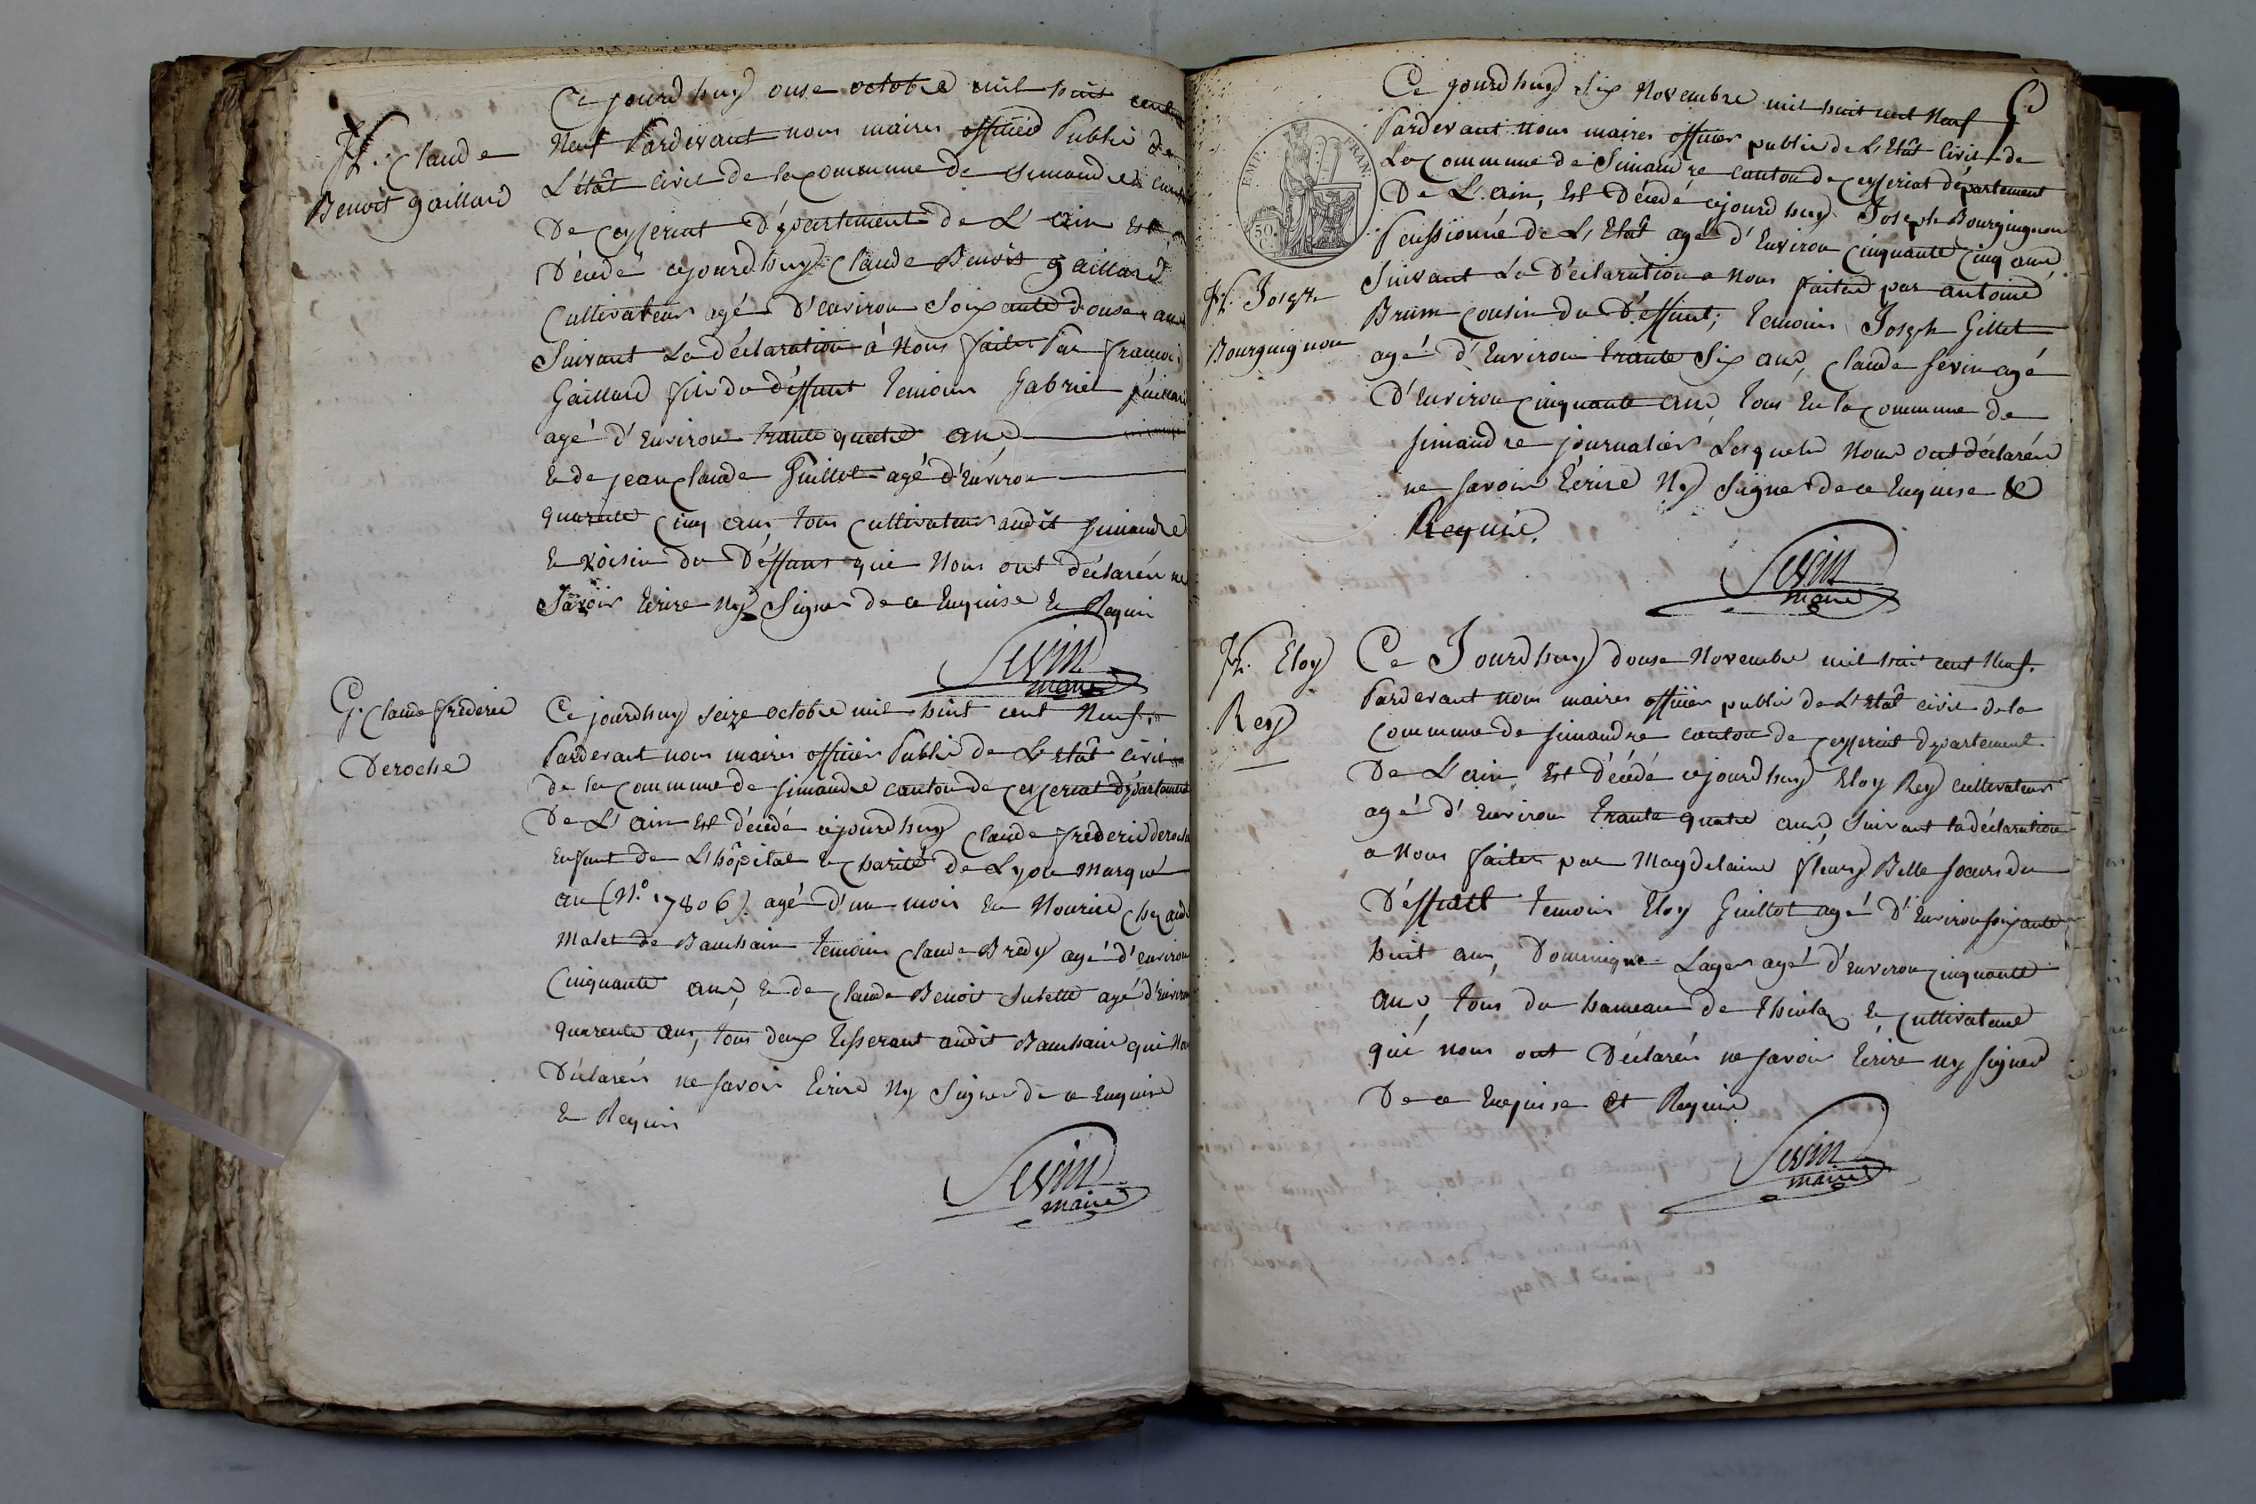 Ce jourd huy onse octobre mil huit cent
H. Claude
Benoit gaillard
Neuf Pardevant nous maires officier Public de
L'état civil de la commune de simandre
De ceyzeriat Département de L'ain Est
Décédé cejourd huy Claude Benoit gaillard
Cultivateur agé D'environ Soixante douse ans
Suivant La déclaration à Nous faite Par francois
Gaillard fils du déffunt Temoins Gabriel
agé d'Environ trante quatre ans
Et de jean claude Guillot agé d'Environ
quarente cinq ans tous cultivateur audit simandre
et voisin du Déffunt qui Nous ont déclarés ne
Savoir Ecrire Ny Signer de ce Enquise et Requis
Sevin
maire
G. Claude frederic
Deroche
Ce jourd huy seize octobre mil huit cent Neuf
Pardevant nous maires officier Public de L'Etât civil
de la commune de simandre canton de ceyzeriat département
De L'ain Est décédé cejourd huy Claude frederic deroche
Enfant de L'hôpital et charité de Lyon marqué
au (N.° 17806) agé d'un mois En Nourice chez
Malet de Banchain temoins claude Bredy agé d'environ
Cinquante ans, et de claude Benoit Subette agé d'Environ
quarente ans, tous deux tisserant audit Banchain qui Nous
Déclarés ne savoir Ecrire Ny Signer de ce Enquise
et Requis
Sevin
maire
Ce jourd huy Six Novembre mil huit cent Neuf
Pardevant Nous maires officier public de L'Etât Civil de
La Commune de Simandre canton de ceyzeriat département
De L'ain, Est Décédé cejourd huy Joseph Bourguignon
Penssionné de L'Etat agé d'Environ Cinquante Cinq ans
Suivant La Déclaration a Nous faite par antoine
Brum cousin du Déffunt; temoins Joseph Gillet
agé d'Environ trante Six ans, Claude Sevin agé
D'Environ Cinquante ans tous En la commune de
simandre journalier Lesquels Nous ont déclarés
ne savoir Ecrire Ny Signer de ce Enquise et
Requis.
EMP. FRAN.
50
H. Joseph
Bourguignon
Sevin
maire
H. Eloy
Rey
Ce Jourd huy douse Novembre mil huit cent Neuf.
Pardevant nous maires officier public de L'état civil de la
Commune de simandre canton de ceyzeriat département
De L'ain Est décédé cejourd huy Eloy Rey cultivateur
agé d'Environ trante quatre ans Suivant la déclaration
a Nous faite par Magdelaine fleury Belle soeur du
Déffunt temoins Eloy Guillot agé D'Environ soixante
huit ans, Dominique Lager agé d'Environ cinquante
ans, tous du hameau de et cultivateur
qui nous ont Déclarés ne savoir Ecrire ny signer
De ce Enquise et Requis
Sevin
maire